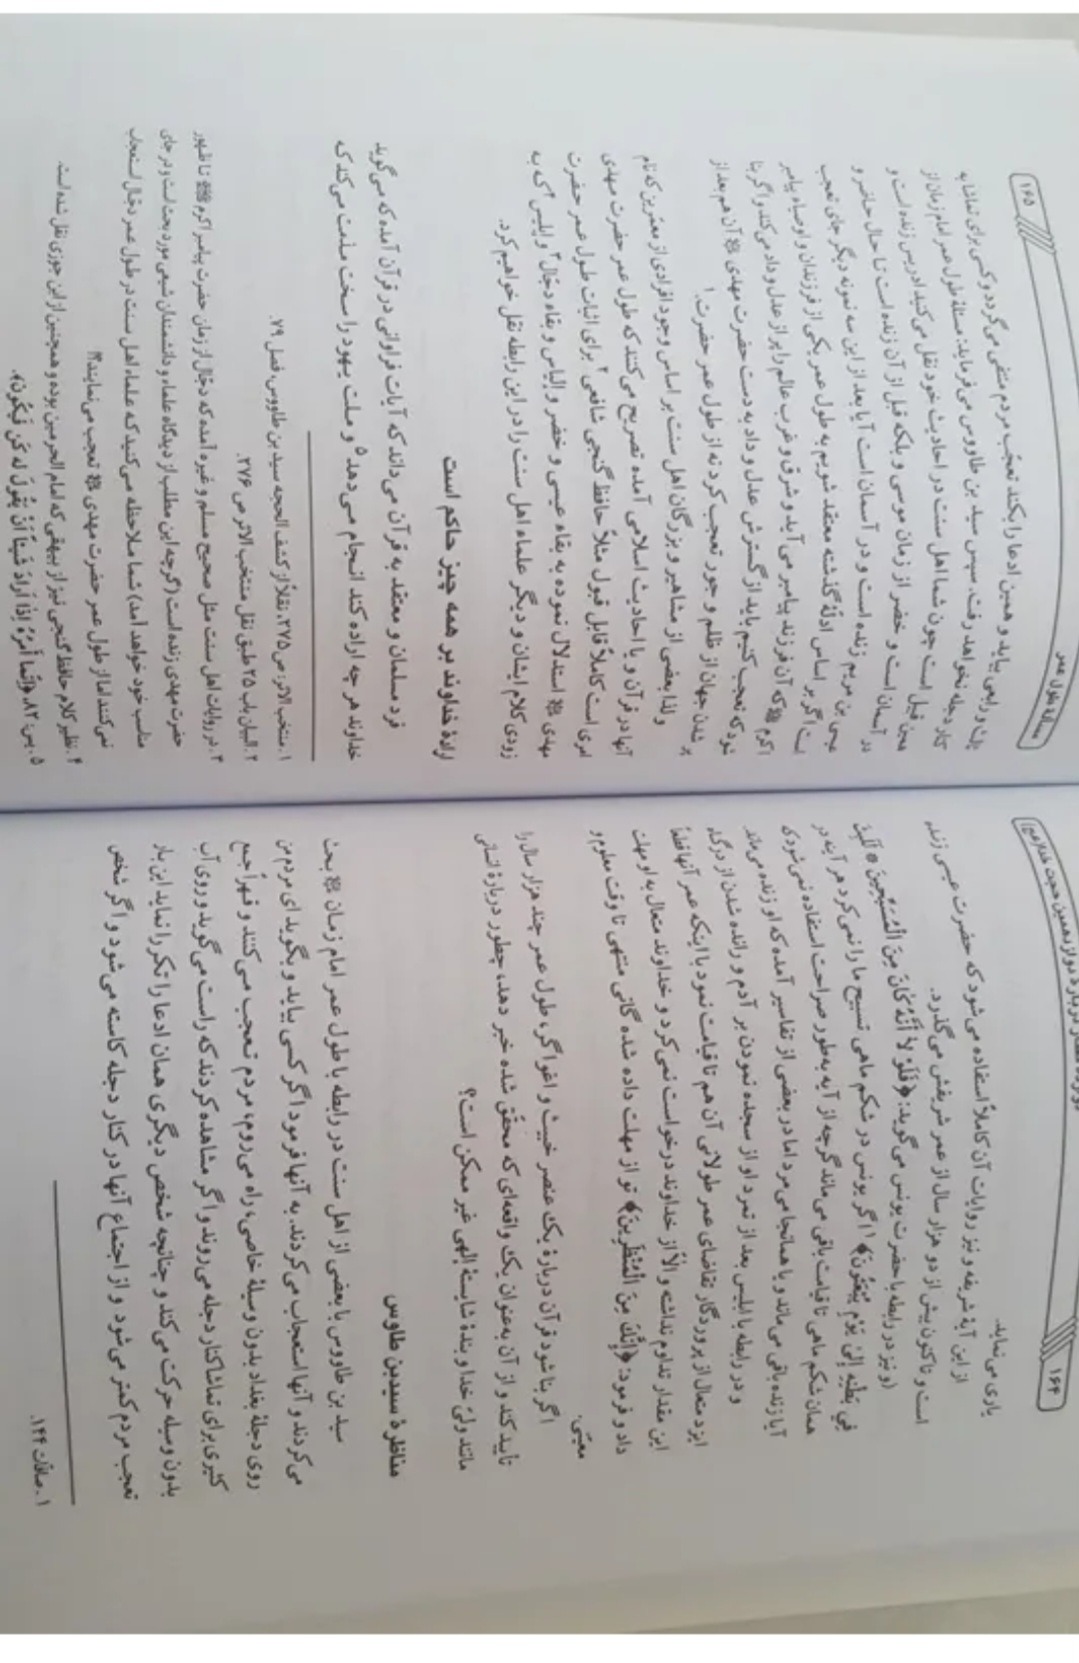 ۱۶۴
دوازده گفتار درباره دوازدهمین حجت خدا (عج)
یاری می‌نماید.
از این آیهٔ شریفه و نیز روایات آن کاملاً استفاده می‌شود که حضرت عیسی زنده
است و تاکنون بیش از دو هزار سال از عمر شریفش می‌گذرد.
(و نیز در رابطه با حضرت یونس می‌گوید: ﴿فَلَوْ لَا أَنَّهُ كَانَ مِنَ الْمُسَبِّحِينَ * لَلَبِثَ
فِي بَطْنِهِ إِلَىٰ يَوْمِ يُبْعَثُونَ﴾۱ اگر یونس در شکم ماهی تسبیح ما را نمی‌کرد هر آینه در
همان شکم ماهی تا قیامت باقی می‌ماند گرچه از آیه به‌طور صراحت استفاده نمی‌شود که
آیا زنده باقی می‌ماند و یا همانجا می‌مرد اما در بعضی از تفاسیر آمده که او زنده می‌ماند
و در رابطه با ابلیس بعد از تمرد او از سجده نمودن بر آدم و رانده شدن از درگاه
ایزد متعال از پروردگار تقاضای عمر طولانی آن هم تا قیامت نمود با اینکه عمر آنها قطعاً
این مقدار تداوم نداشته و الّا از خداوند درخواست نمی‌کرد و خداوند متعال به او مهلت
داد و فرمود: ﴿إِنَّكَ مِنَ الْمُنْظَرِينَ﴾ تو از مهلت داده شده گانی منتهی تا وقت معلوم و
معیّنی.
اگر بنا شود قرآن دربارهٔ یک عنصر خبیث و اغواگر، طول عمر چند هزار سال را
تأیید کند و از آن به‌عنوان یک واقعه‌ای که محقّق شده خبر دهد، چطور دربارهٔ انسانی
مانند ولیّ خدا و بندهٔ شایستهٔ الهی غیر ممکن است؟
مناظرهٔ سیدبن طاوس
سید بن طاووس با بعضی از اهل سنت در رابطه با طول عمر امام زمان بحث
می‌کردند و آنها استعجاب می‌کردند. به آنها فرمود اگر کسی بیاید و بگوید ای مردم من
روی دجلهٔ بغداد بدون وسیلهٔ خاصی، راه می‌روم، مردم تعجب می‌کنند و قهراً جمع
کثیری برای تماشا کنار دجله می‌روند و اگر مشاهده کردند که راست می‌گوید و روی آب
بدون وسیله حرکت می‌کند و چنانچه شخص دیگری همان ادعا را تکرار نماید این بار
تعجب مردم کمتر می‌شود و از اجتماع آنها در کنار دجله کاسته می‌شود و اگر شخص
۱. صافات ۱۴۴.
مسألهٔ طول عمر
۱۶۵
ثالث و رابعی بیاید و همین ادعا را بکند تعجّب مردم منتفی می‌گردد و کسی برای تماشا به
کنار دجله نخواهد رفت. سپس سید بن طاووس می‌فرماید: مسئلهٔ طول عمر امام زمان از
همین قبیل است چون شما اهل سنت در احادیث خود نقل می‌کنید ادریس زنده است و
در آسمان است و خضر از زمان موسی و بلکه قبل از آن زنده است تا حال حاضر و
عیسی بن مریم زنده است و در آسمان است آیا بعد از این سه نمونه دیگر جای تعجب
است اگر بر اساس ادلّهٔ گذشته معتقد شویم به طول عمر یکی از فرزندان و اوصیاء پیامبر
اکرم که آن فرزند پیامبر می‌آید و شرق و غرب عالم را پر از عدل و داد می‌کند و اگر بنا
شود که تعجب کنیم باید از گسترش عدل و داد به دست حضرت مهدی آن هم بعد از
پر شدن جهان از ظلم و جور تعجب کرد نه از طول عمر حضرت.۱
و لذا بعضی از مشاهیر و بزرگان اهل سنت بر اساس وجود افرادی از معمّرین که نام
آنها در قرآن و یا احادیث اسلامی آمده تصریح می‌کنند که طول عمر حضرت مهدی
امری است کاملاً قابل قبول مثلاً حافظ گنجی شافعی۲ برای اثبات طول عمر حضرت
مهدی استدلال نموده به بقاء عیسی و خضر و الیاس و بقاء دجّال۳ و ابلیس۴ که به
زودی کلام ایشان و دیگر علماء اهل سنت را در این رابطه نقل خواهیم کرد.
ارادهٔ خداوند بر همه چیز حاکم است
فرد مسلمان و معتقد به قرآن می‌داند که آیات فراوانی در قرآن آمده که می‌گوید
خداوند هر چه اراده کند انجام می‌دهد۵ و ملت یهود را سخت مذمت می‌کند که
۱. منتخب الاثر، ص ۲۷۵، نقلاً از کشف المحجه سید بن طاووس، فصل ۷۹.
۲. البیان باب ۲۵ طبق نقل منتخب الاثر ص ۲۷۶.
۳. در روایات اهل سنت مثل صحیح مسلم و غیره آمده که دجّال از زمان حضرت پیامبر اکرم تا ظهور
حضرت مهدی زنده است (گرچه این مطلب از دیدگاه علماء و دانشمندان شیعی مورد بحث است و در جای
مناسب خود خواهد آمد) شما ملاحظه می‌کنید که علماء اهل سنت در طول عمر دجّال استعجاب
نمی‌کنند اما از طول عمر حضرت مهدی تعجب می‌نمایند؟!
۴. نظیر کلام حافظ گنجی نیز از بیهقی که امام الحرمین بوده و همچنین از ابن جوزی نقل شده است.
۵. یس: ۸۲، ﴿إِنَّمَا أَمْرُهُ إِذَا أَرَادَ شَيْئاً أَنْ يَقُولَ لَهُ كُنْ فَيَكُونُ﴾.